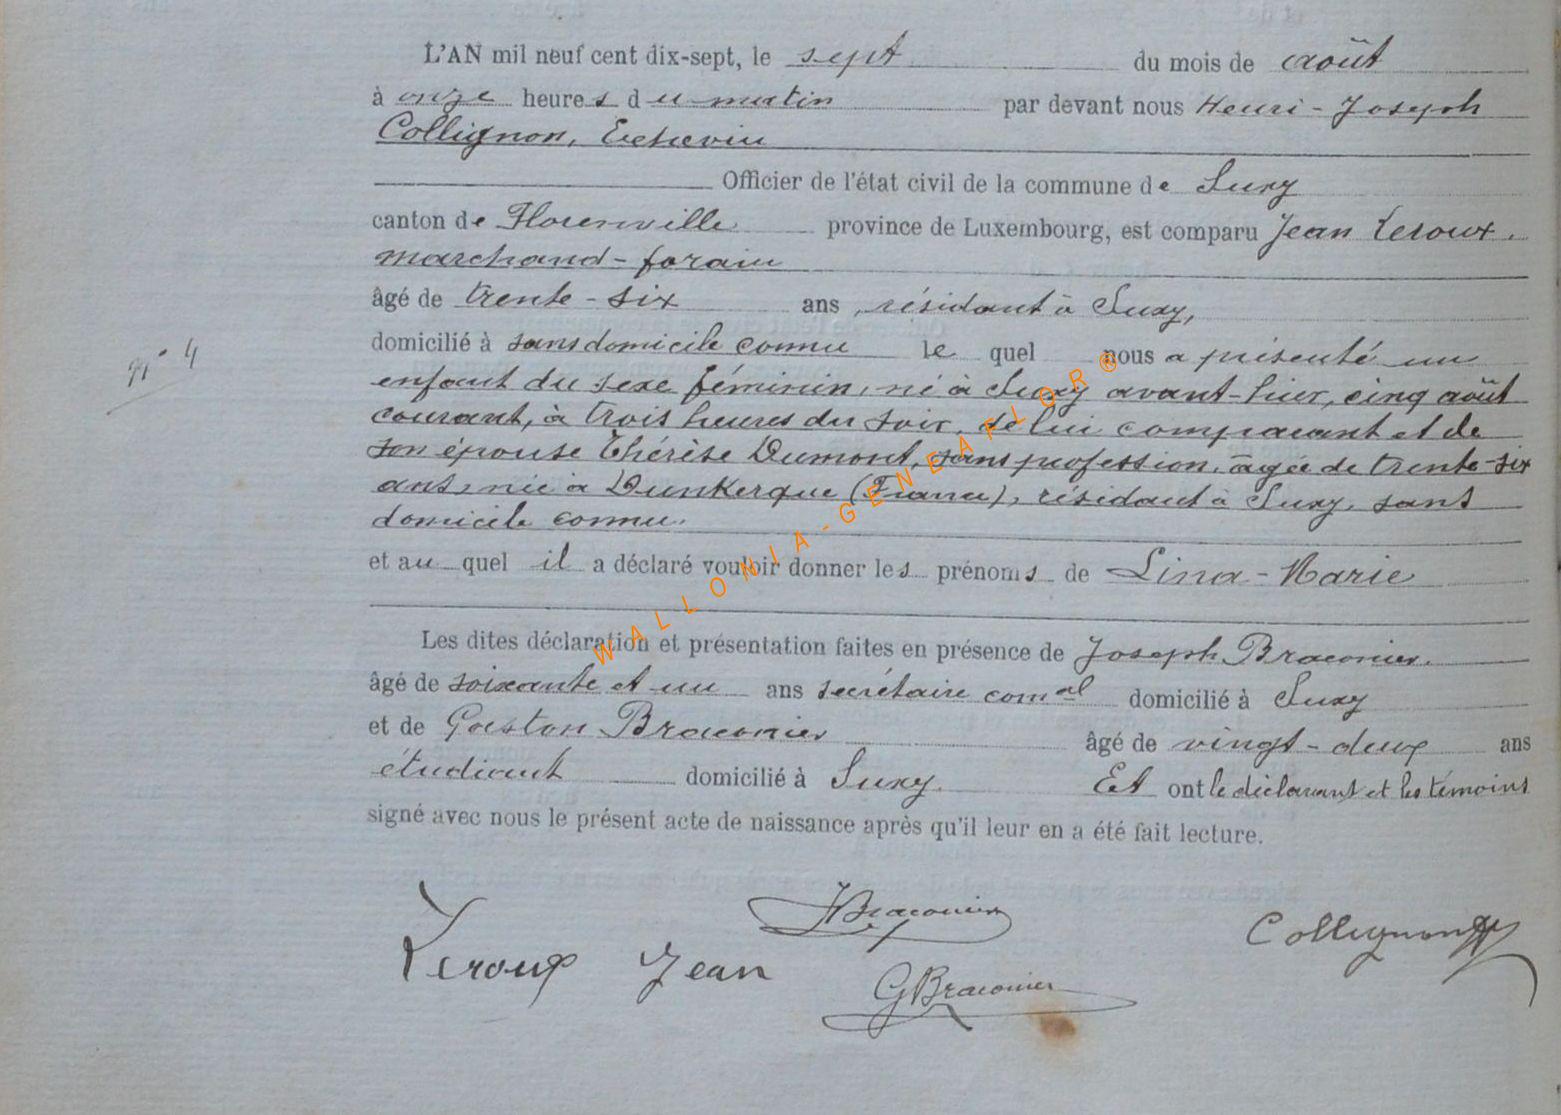 L'AN mil neuf cent dix-sept, le sept du mois de août
à onze heures du matin par devant nous Henri-Joseph
Collignon, Echevin
Officier de l'état civil de la commune de Suxy
canton de Florenville province de Luxembourg, est comparu Jean Leroux,
marchand-forain
âgé de trente-six ans, résidant à Suxy,
domicilié à sans domicile connu le quel nous a présenté un
N° 4
enfant du sexe féminin, né à Suxy avant-hier, cinq août
courant, à trois heures du soir, de lui comparant et de
son épouse Thérèse Dumont, sans profession, âgée de trente-six
ans, née à Dunkerque (France), résidant à Suxy, sans
domicile connu.
et au quel il a déclaré vouloir donner les prénoms de Lina-Marie
Les dites déclaration et présentation faites en présence de Joseph Braconier.
âgé de soixante et un ans secrétaire comal domicilié à Suxy
et de Gaston Braconier âgé de vingt-deux ans
étudiant domicilié à Suxy. Et ont le déclarant et les témoins
signé avec nous le présent acte de naissance après qu'il leur en a été fait lecture.
JBraconier
Leroux Jean Collignon
GBraconier
WALLONIA-GENEAFLOR®